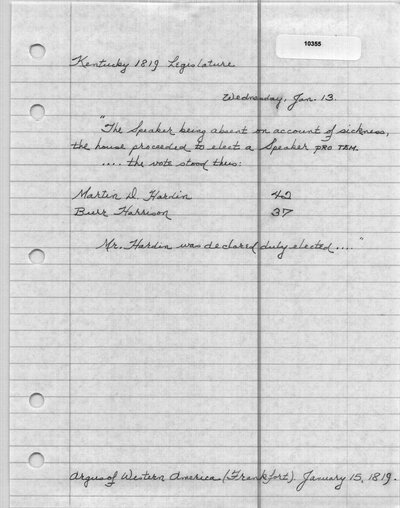 10355
Kentucky 1819 Legislature
Wednesday, Jan. 13.
"The Speaker being absent on account of sickness,
the house proceeded to elect a Speaker PRO TEM.
.... the vote stood thus:
Martin D. Hardin 42
Burr Harrison 37
Mr. Hardin was declared duly elected...."
Argus of Western America (Frankfort). January 15, 1819.